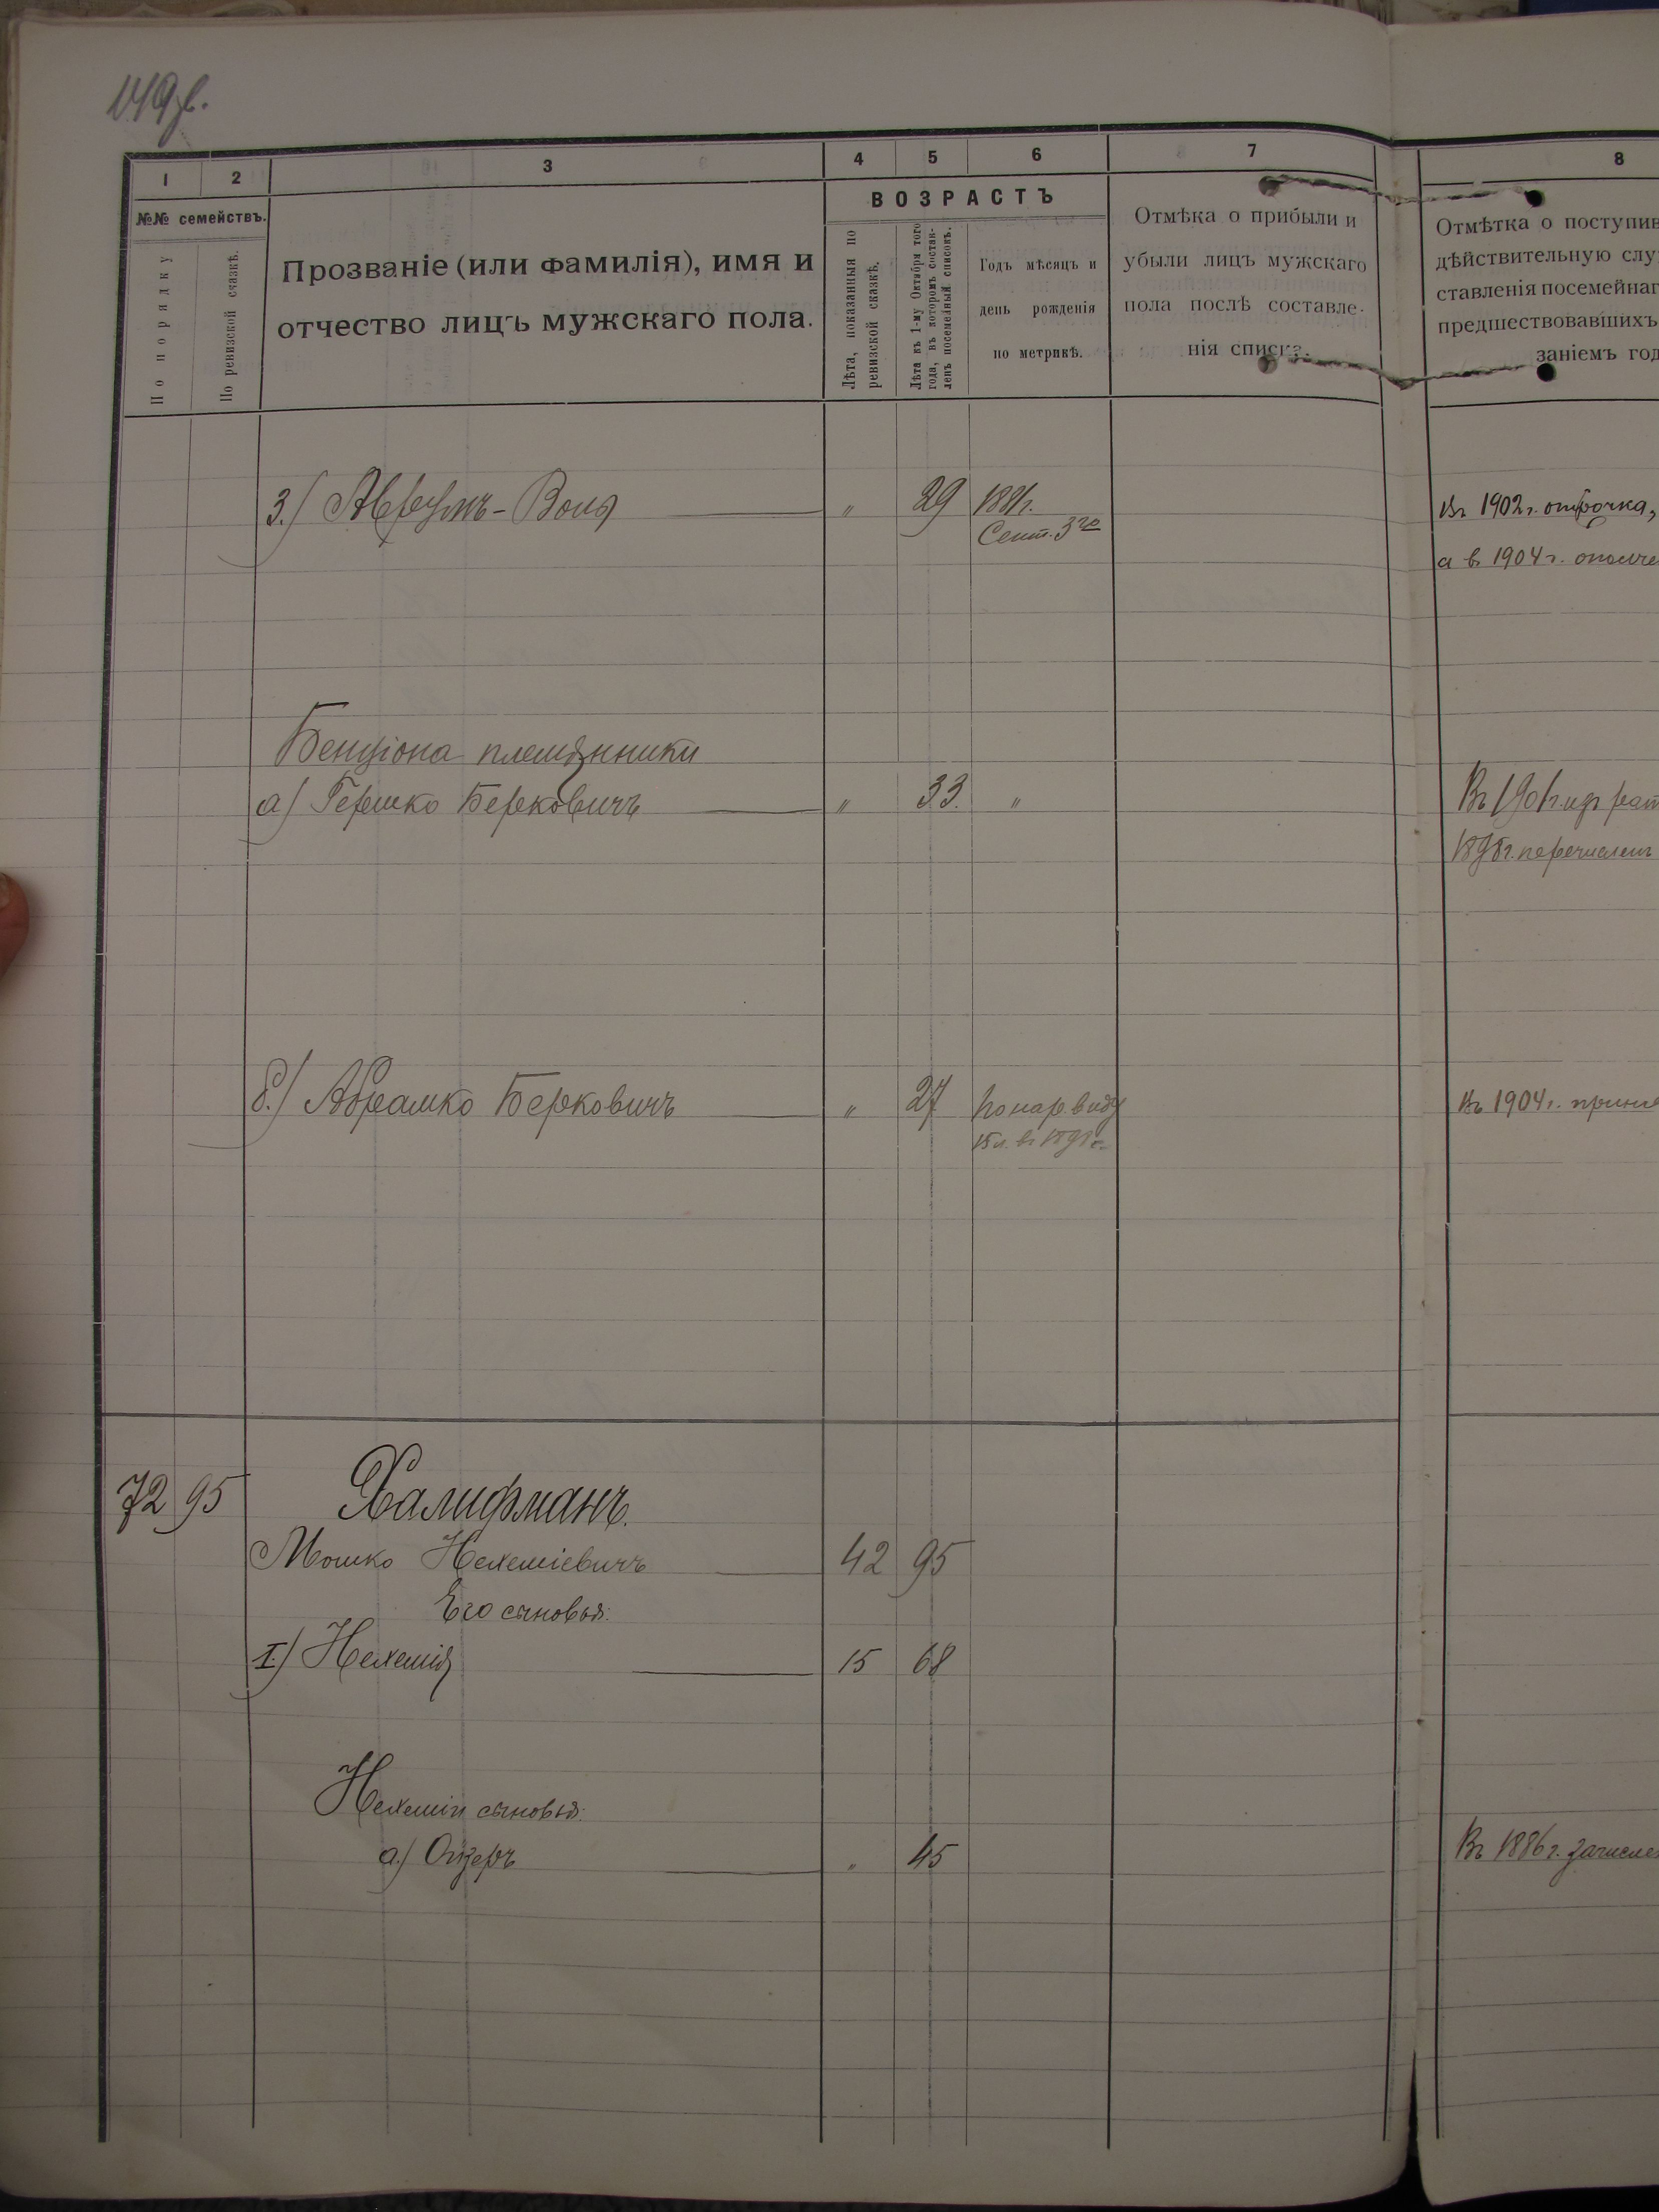 149 об.
1 2 3 4 5 6 7 8
№№ семействъ.
По порядку
По ревизской сказкѣ.
Прозваніе (или фамилія), имя и
отчество лицъ мужскаго пола.
ВОЗРАСТЪ
Лѣта, показанныя по
ревизской сказкѣ.
Лѣта къ 1-му Октября того
года, въ которомъ состав-
ленъ посемейный списокъ.
Годъ мѣсяцъ и
день рожденія
по метрикѣ.
Отмѣка о прибыли и
убыли лицъ мужскаго
пола послѣ составле-
нія списка.
Отмѣтка о поступив
дѣйствительную слу
ставленія посемейнаг
предшествовавшихъ
заніемъ год
3.) Аврумъ- " 29 1881г. Въ 1902 г. отсрочка,
Сент. 3го
а въ 1904 г. ополче
Бенціона племянники
а) Гершко Берковичъ " 33. " Въ 1901г. изъ рат
1898г. перечисленъ
б.) Абрамко Берковичъ " 27 По нар. виду Въ 1904 г. приня
15 л. въ 1898 г.
72 95 Халифманъ.
Мошко Нехеміевичъ 42 95
Его сыновья:
I.) Нехемія 15 68
Нехеміи сыновья:
а.) Ойзеръ " 45 Въ 1886 г. зачисле